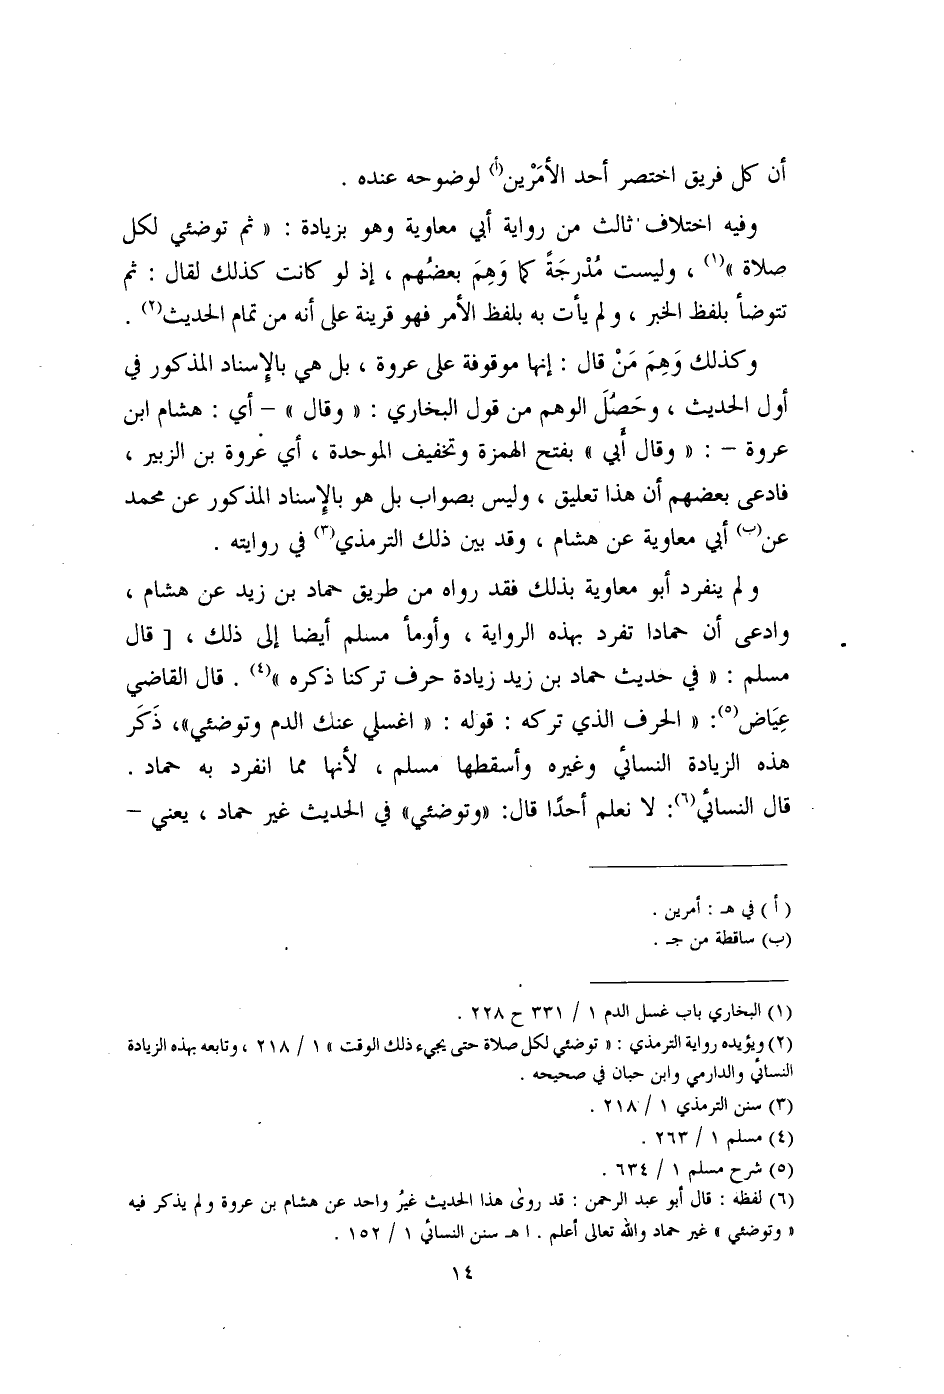 أن كل فريق اختصر أحد الأمَرْين(أ) لوضوحه عنده .
وفيه اختلاف ثالث من رواية أبي معاوية وهو بزيادة : « ثم توضئي لكل
صلاة »(١) ، وليست مُدْرجَةً كما وَهِمَ بعضُهم ، إذ لو كانت كذلك لقال : ثم
تتوضأ بلفظ الخبر ، ولم يأت به بلفظ الأمر فهو قرينة على أنه من تمام الحديث(٢) .
وكذلك وَهِمَ مَنْ قال : إنها موقوفة على عروة ، بل هي بالإسناد المذكور في
أول الحديث ، وحَصُلَ الوهم من قول البخاري : « وقال » – أي : هشام ابن
عروة – : « وقال أَبي » بفتح الهمزة وتخفيف الموحدة ، أي عروة بن الزبير ،
فادعى بعضهم أن هذا تعليق ، وليس بصواب بل هو بالإسناد المذكور عن محمد
عن(ب) أبي معاوية عن هشام ، وقد بين ذلك الترمذي(٣) في روايته .
ولم ينفرد أبو معاوية بذلك فقد رواه من طريق حماد بن زيد عن هشام ،
وادعى أن حمادا تفرد بهذه الرواية ، وأومأ مسلم أيضا إلى ذلك ، [ قال
مسلم : « في حديث حماد بن زيد زيادة حرف تركنا ذكره »(٤) . قال القاضي
عِيَاض(٥): « الحرف الذي تركه : قوله : « اغسلي عنك الدم وتوضئي»، ذَكَر
هذه الزيادة النسائي وغيره وأسقطها مسلم ، لأنها مما انفرد به حماد .
قال النسائي(٦): لا نعلم أحدًا قال: «وتوضئي» في الحديث غير حماد ، يعني –
( أ ) في هـ : أمرين .
(ب) ساقطة من جـ .
(١) البخاري باب غسل الدم ١ / ٣٣١ ح ٢٢٨ .
(٢) ويؤيده رواية الترمذي : « توضئي لكل صلاة حتى يجيء ذلك الوقت » ١ / ٢١٨ ، وتابعه بهذه الزيادة
النسائي والدارمي وابن حبان في صحيحه .
(٣) سنن الترمذي ١ / ٢١٨ .
(٤) مسلم ١ / ٢٦٣ .
(٥) شرح مسلم ١ / ٦٣٤ .
(٦) لفظه : قال أبو عبد الرحمن : قد روىٰ هذا الحديث غيرُ واحد عن هشام بن عروة ولم يذكر فيه
« وتوضئي » غير حماد والله تعالى أعلم . ا هـ سنن النسائي ١ / ١٥٢ .
١٤